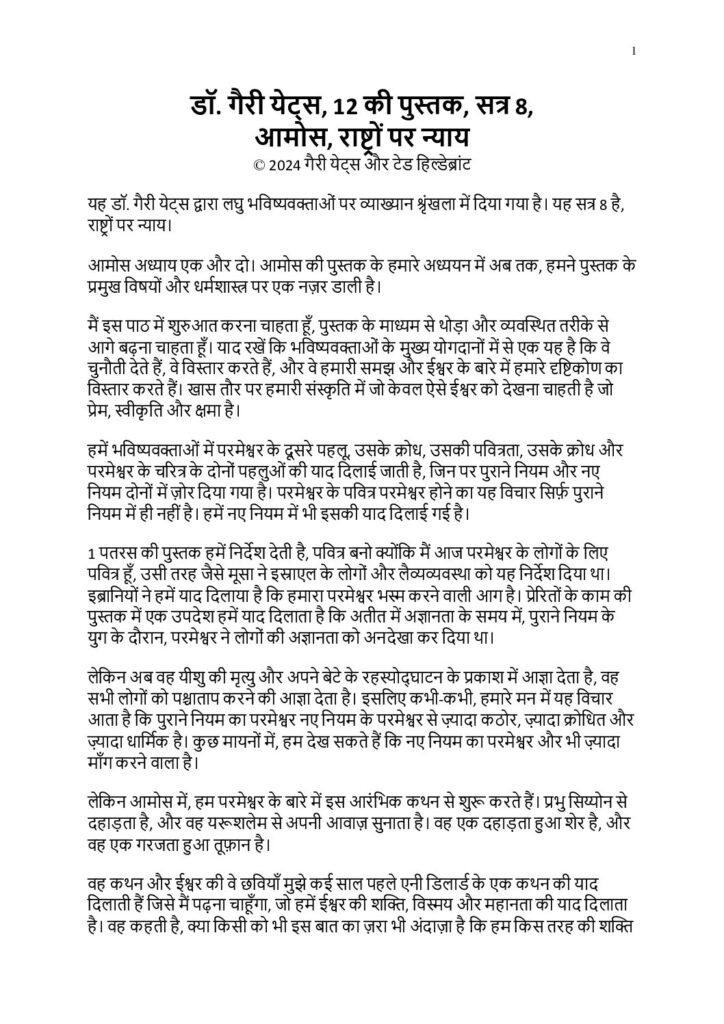 1
डॉ. गैरी येट्स, 12 की पुस्तक, सत्र 8,
आमोस, राष्ट्रों पर न्याय
© 2024 गैरी येट्स और टेड हिल्डेब्रांट
यह डॉ. गैरी येट्स द्वारा लघु भविष्यवक्ताओं पर व्याख्यान श्रृंखला में दिया गया है। यह सत्र 8 है,
राष्ट्रों पर न्याय।
आमोस अध्याय एक और दो। आमोस की पुस्तक के हमारे अध्ययन में अब तक, हमने पुस्तक के
प्रमुख विषयों और धर्मशास्त्र पर एक नज़र डाली है।
मैं इस पाठ में शुरुआत करना चाहता हूँ, पुस्तक के माध्यम से थोड़ा और व्यवस्थित तरीके से
आगे बढ़ना चाहता हूँ। याद रखें कि भविष्यवक्ताओं के मुख्य योगदानों में से एक यह है कि वे
चुनौती देते हैं, वे विस्तार करते हैं, और वे हमारी समझ और ईश्वर के बारे में हमारे दृष्टिकोण का
विस्तार करते हैं। खास तौर पर हमारी संस्कृति में जो केवल ऐसे ईश्वर को देखना चाहती है जो
प्रेम, स्वीकृति और क्षमा है।
हमें भविष्यवक्ताओं में परमेश्वर के दूसरे पहलू, उसके क्रोध, उसकी पवित्रता, उसके क्रोध और
परमेश्वर के चरित्र के दोनों पहलुओं की याद दिलाई जाती है, जिन पर पुराने नियम और नए
नियम दोनों में ज़ोर दिया गया है। परमेश्वर के पवित्र परमेश्वर होने का यह विचार सिर्फ़ पुराने
नियम में ही नहीं है। हमें नए नियम में भी इसकी याद दिलाई गई है।
1 पतरस की पुस्तक हमें निर्देश देती है, पवित्र बनो क्योंकि मैं आज परमेश्वर के लोगों के लिए
पवित्र हूँ, उसी तरह जैसे मूसा ने इस्राएल के लोगों और लैव्यव्यवस्था को यह निर्देश दिया था।
इब्रानियों ने हमें याद दिलाया है कि हमारा परमेश्वर भस्म करने वाली आग है। प्रेरितों के काम की
पुस्तक में एक उपदेश हमें याद दिलाता है कि अतीत में अज्ञानता के समय में, पुराने नियम के
युग के दौरान, परमेश्वर ने लोगों की अज्ञानता को अनदेखा कर दिया था।
लेकिन अब वह यीशु की मृत्यु और अपने बेटे के रहस्योद्घाटन के प्रकाश में आज्ञा देता है, वह
सभी लोगों को पश्चाताप करने की आज्ञा देता है। इसलिए कभी-कभी, हमारे मन में यह विचार
आता है कि पुराने नियम का परमेश्वर नए नियम के परमेश्वर से ज़्यादा कठोर, ज़्यादा क्रोधित और
ज़्यादा धार्मिक है। कुछ मायनों में, हम देख सकते हैं कि नए नियम का परमेश्वर और भी ज़्यादा
माँग करने वाला है।
लेकिन आमोस में, हम परमेश्वर के बारे में इस आरंभिक कथन से शुरू करते हैं। प्रभु सिय्योन से
दहाड़ता है, और वह यरूशलेम से अपनी आवाज़ सुनाता है। वह एक दहाड़ता हुआ शेर है, और
वह एक गरजता हुआ तूफ़ान है।
वह कथन और ईश्वर की वे छवियाँ मुझे कई साल पहले एनी डिलार्ड के एक कथन की याद
दिलाती हैं जिसे मैं पढ़ना चाहूँगा, जो हमें ईश्वर की शक्ति, विस्मय और महानता की याद दिलाता
है। वह कहती है, क्या किसी को भी इस बात का ज़रा भी अंदाज़ा है कि हम किस तरह की शक्ति